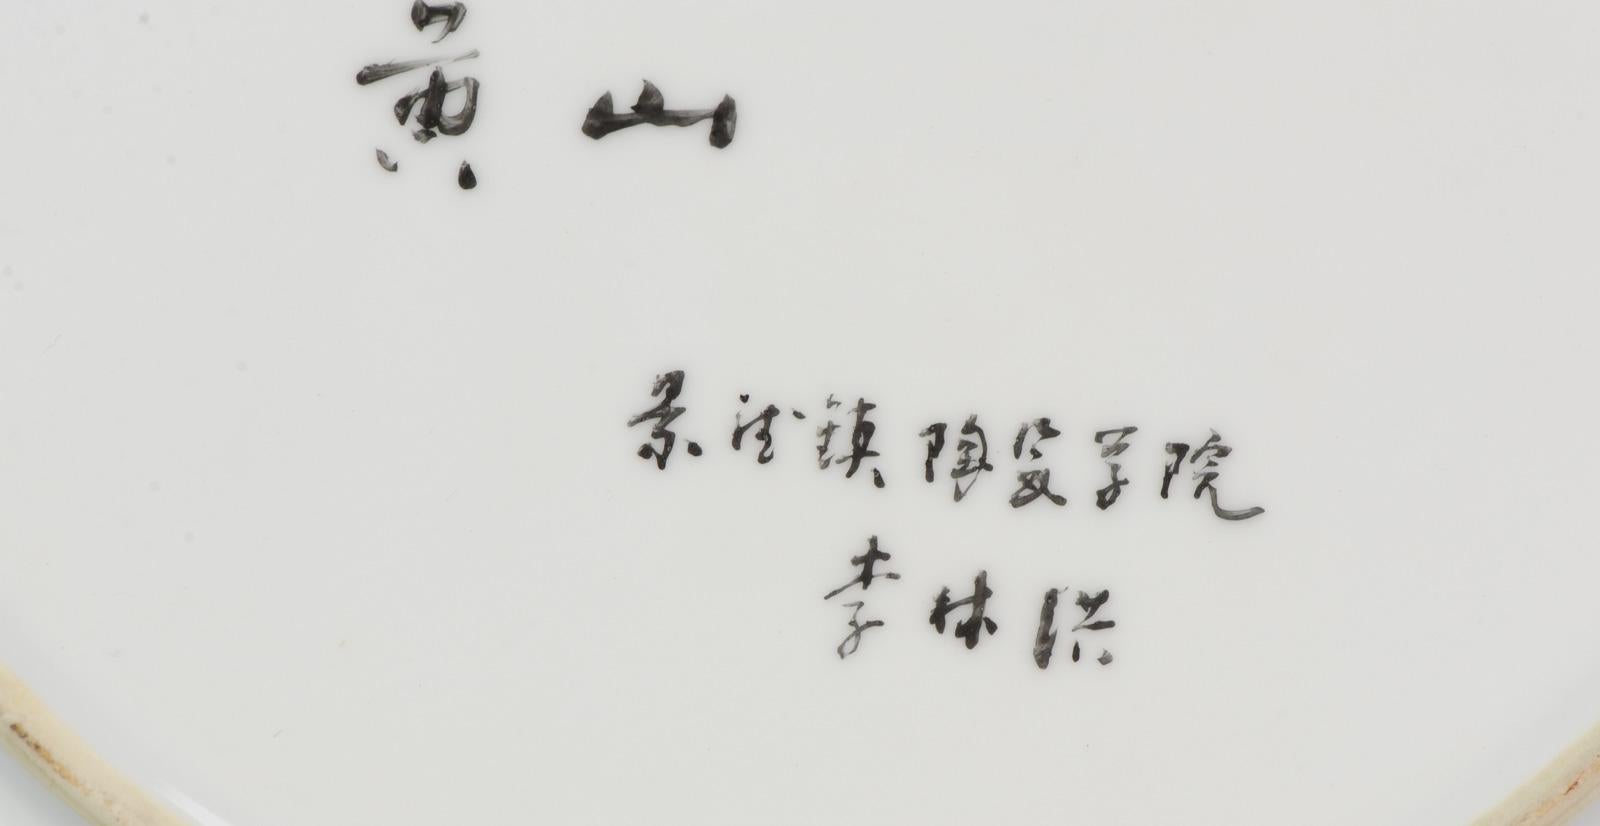 黄山
景德鎮陶瓷学院
李林洪